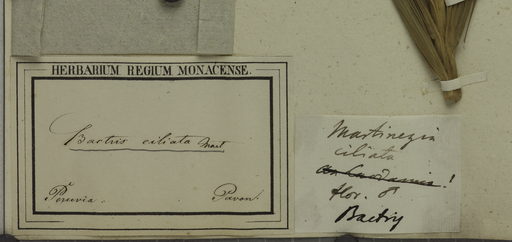 HERBARIUM REGIUM MONACENSE.
Bactris ciliata Mart
Peruvia. Pavon.
Martinezia
ciliata
!
flor. ♂
Bactris